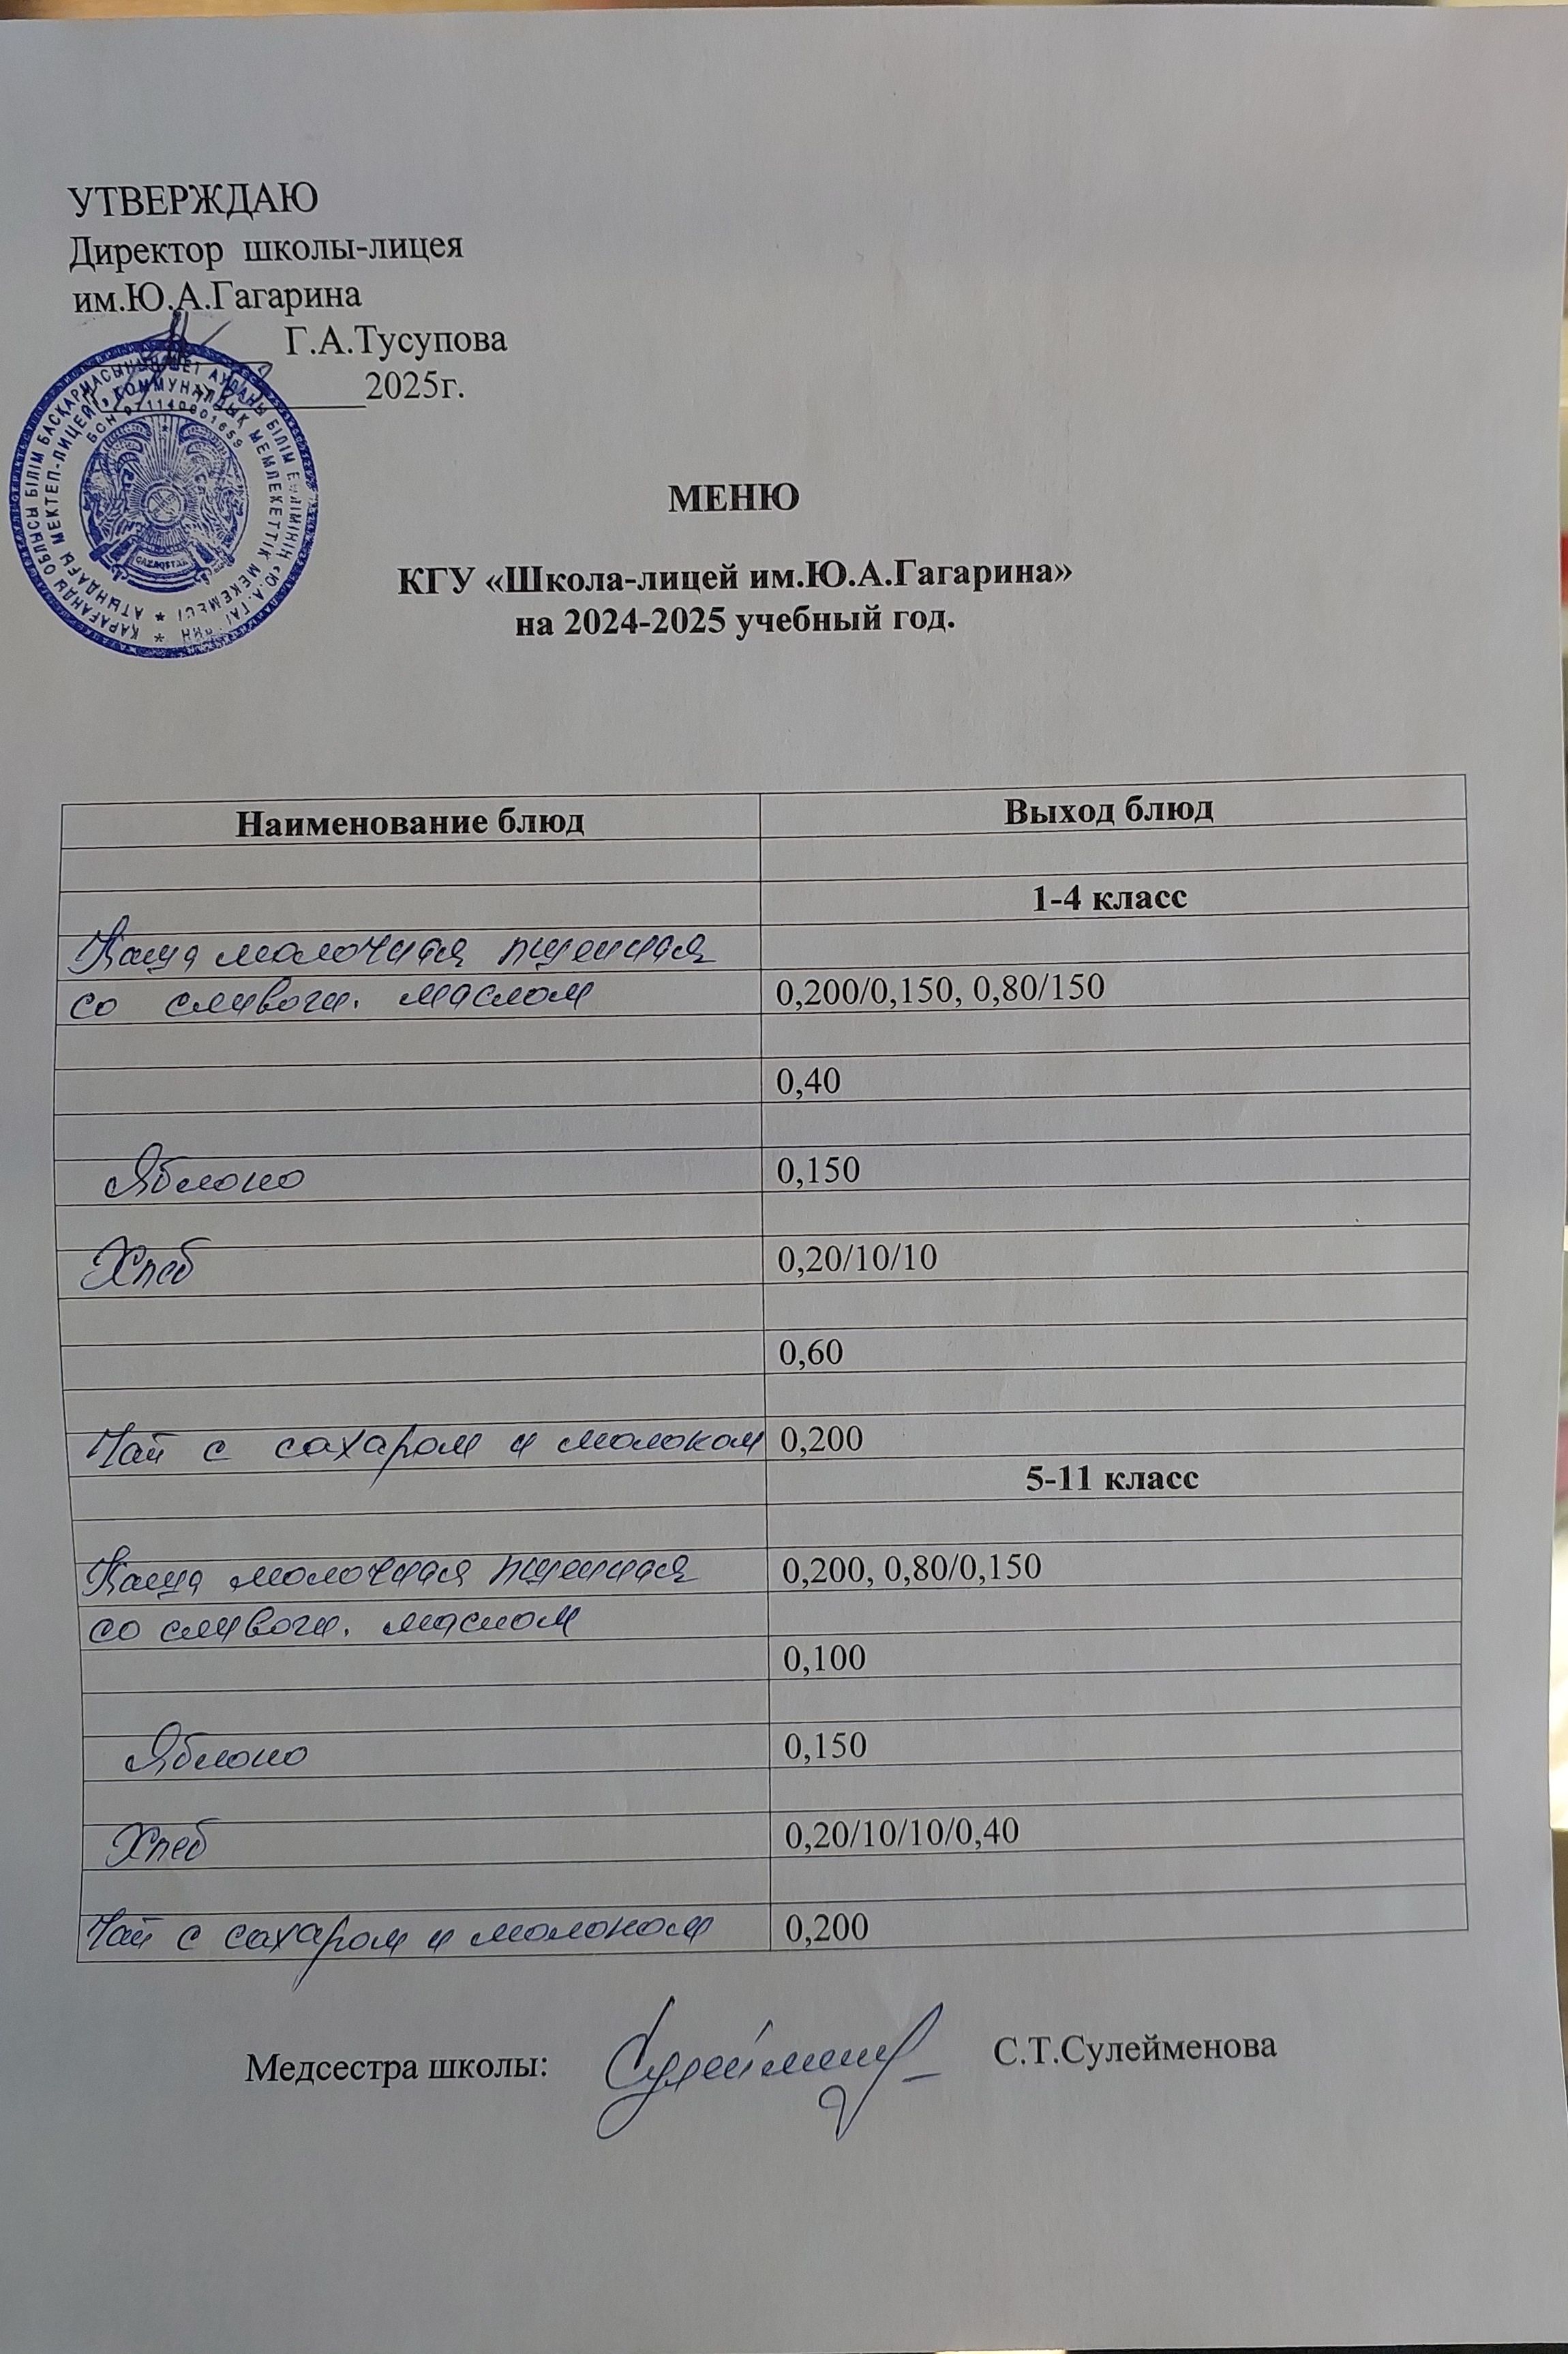 УТВЕРЖДАЮ
Директор школы-лицея
им.Ю.А.Гагарина
Г.А.Тусупова
2025г.
БСН 971140001659
QAZAQSTAN
МЕНЮ
КГУ «Школа-лицей им.Ю.А.Гагарина»
на 2024-2025 учебный год.
Наименование блюд Выход блюд
1-4 класс
Каша молочная пшенная
со сливочн. маслом 0,200/0,150, 0,80/150
0,40
Яблоко 0,150
Хлеб 0,20/10/10
0,60
Чай с сахаром и молоком 0,200
5-11 класс
Каша молочная пшенная 0,200, 0,80/0,150
со сливочн. маслом
0,100
Яблоко 0,150
Хлеб 0,20/10/10/0,40
Чай с сахаром и молоком 0,200
Медсестра школы: С.Т.Сулейменова